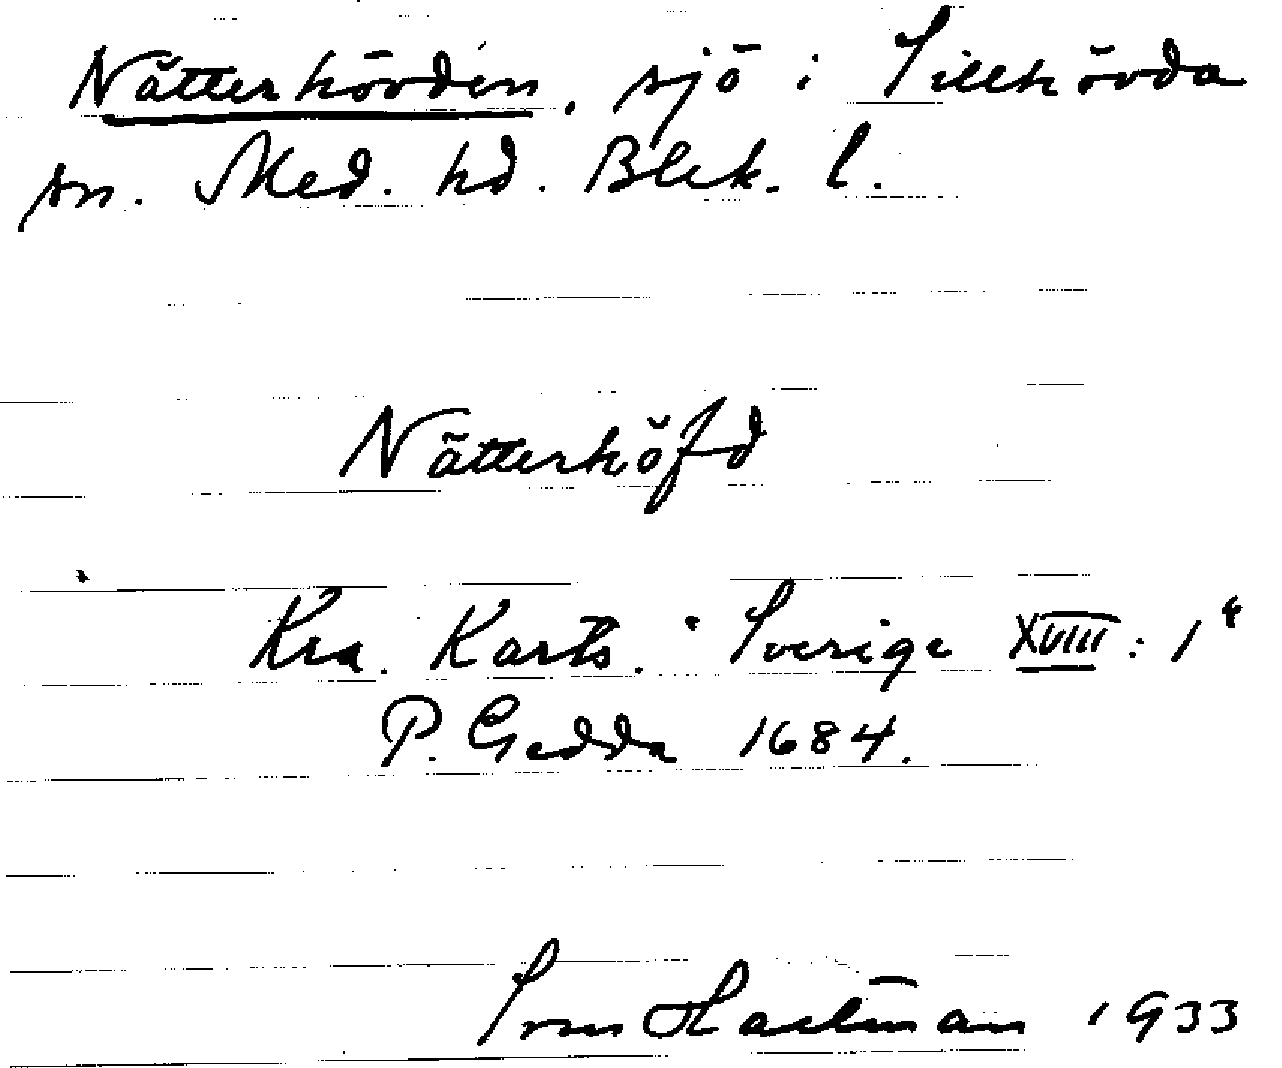 Nätterhövden, sjö i Sillhövda
sn. Med. hd. Blek. l.
Nätterhöfd
Kra. Karts. Sverige XVIII: 1
P. Gedda 1684.
Hartman 1933